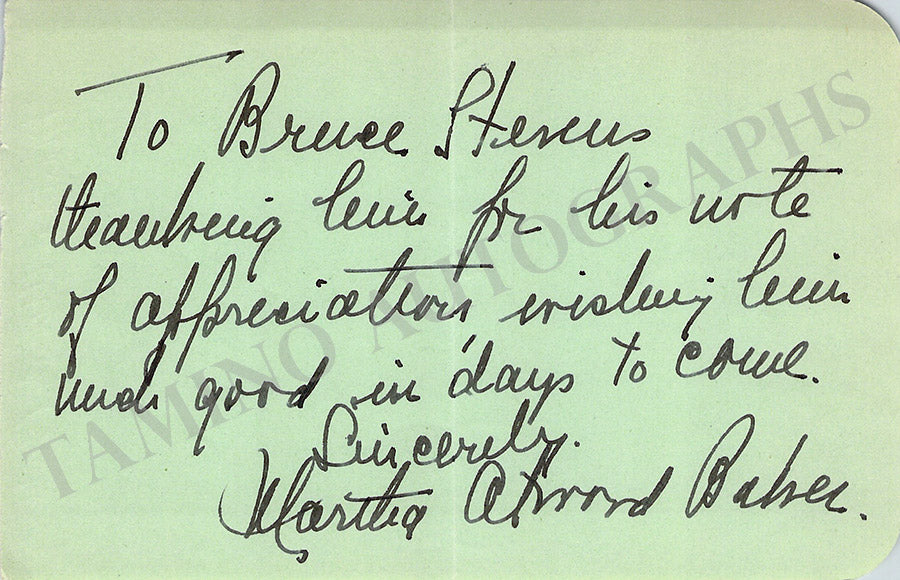 To Bruce Stevens
thanking him for his note
of appreciation wishing him
much good in days to come.
Sincerely.
Martha Atwood Baker.
TAMINO AUTOGRAPHS